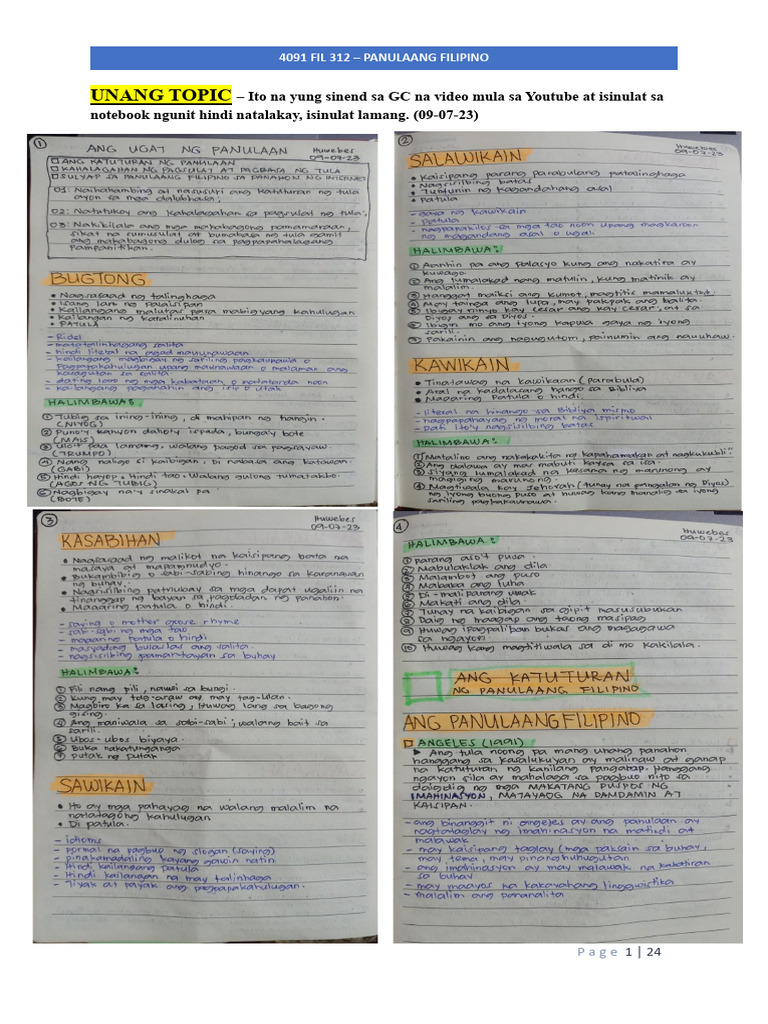 4091 FIL 312 – PANULAANG FILIPINO
UNANG TOPIC – Ito na yung sinend sa GC na video mula sa Youtube at isinulat sa
notebook ngunit hindi natalakay, isinulat lamang. (09-07-23)
1
ANG UGAT NG PANULAAN
Huwebes
09-07-23
ANG KATUTURAN NG PANULAAN
KAHALAGAHAN NG PAGSULAT AT PAGBASA NG TULA
SULYAP SA PANULAANG FILIPINO SA PANAHON NG INTERNET
O1: Naihahambing at nasusuri ang katuturan ng tula
ayon sa mga dalubhasa;
O2: Natutukoy ang kahalagahan sa pagsulat ng tula;
O3: Nakikilala ang mga makabagong pamamaraan,
sikat na sumusulat at bumabasa ng tula gamit
ang makabagong dulog sa pagpapahalagang
Pampanitikan.
BUGTONG
• Nagsasaad ng talinghaga
• Isang laro ng palaisipan
• Kailangang malutas para mabigyang kahulugan
• Kailangan ng katalinuhan
• PATULA
- Ridel
- matatalinhagang salita
- hindi literal na agad mauunawaan
- kailangang magbigay ng sariling pagkaunawa o
pagpapakahulugan upang maunawaan o malaman ang
kasagutan sa salita
- dating laro ng mga kabataan o matatanda noon
- kailangang gahanin ang isip o utak
HALIMBAWA:
① Tubig sa ining-ining, di mahipan ng hangin.
(NIYOG)
② Puno'y kanyon daho'y ispada, bunga'y bote
(MAIS)
③ Uloit paa lamang, walang pagod sa pagsayaw.
(TRUMPO)
④ Nang naligo si kaibigan, Di nabasa ang katawan.
(GABI)
⑤ Hindi hayop, Hindi tao, Walang gulong tumatakbo.
(AGOS NG TUBIG)
⑥ Nagbigay na'y sinakal pa
(BOTE)
2
Huwebes
09-07-23
SALAWIKAIN
• Kaisipang parang parabulang patalinghaga
• Nagsisilbing batas
• Tuntunin ng kagandahang asal
• Patula
- gaya ng kawikain
- patula
- nagpapakilos sa mga tao noon upang magkaroon
ng magandang asal o ugali
HALIMBAWA:
① Aanhin pa ang palasyo kung ang nakatira ay
kuwago.
② Ang lumalakad nang matulin, kung matinik ay
malalim.
③ Hanggat maiksi ang kumot, magtitis mamaluktot.
④ May tainga ang lupa, may pakpak ang balita.
⑤ Ibigay ninyo kay Cesar ang kay Cesar, at sa
Diyos ang sa Diyos.
⑥ Ibigin mo ang iyong kapwa gaya ng iyong
sarili.
⑦ Pakainin ang nagugutom, painumin ang nauuhaw.
KAWIKAIN
• Tinatawag na kawikaan (parabula)
• Aral na kadalasang hango sa Bibliya
• Maaaring Patula o hindi.
- literal na hinango sa Bibliya mismo
- nagpapahayag ng moral na ispiritwal
- dati ito'y nagsisilbing batas
HALIMBAWA:
① Matalino ang nakakakita ng kapahamakan at nagkukubli."
② Ang dalawa ay mas mabuti kaysa sa isa.
③ Siyang lumalakad ng kasama ng marunong ay
magiging marunong.
④ Magtiwala kay Jehovah (tunay na pangalan ng Diyos)
ng iyong buong puso at huwag kang manalig sa iyong
sariling pagkakaunawa.
3
Huwebes
09-07-23
KASABIHAN
• Nagsasaad ng malikot na kaisipang bata na
masaya at mapamnudyo.
• Bukambibig o sabi-sabing hinango sa karanasan
ng buhay.
• Nagsisilbing patnubay sa mga dapat ugaliin na
tinanggap ng bayan sa pagdadaan ng panahon.
• Maaaring patula o hindi.
- saying o mother goose rhyme
- sabi-sabi ng mga tao
- maaaring patula o hindi
- masyadong bulaklas ang salita.
- nagsisilbing pamantayan sa buhay
HALIMBAWA:
① Pili nang pili, nauwi sa bungi.
② Kung may tag-araw ay may tag-ulan.
③ Magbiro ka sa lasing, Huwag lang sa bagong
gising.
④ Ang maniwala sa sabi-sabi, walang bait sa
sarili.
⑤ Ubos-ubos biyaya.
⑥ Buka nakatunganga
⑦ putak ng putak
SAWIKAIN
• Ito ay mga pahayag na walang malalim na
natatagong kahulugan
• Di patula.
- idioms
- pormal na pagbuo ng slogan (saying)
- pinakamadaling kayang gawin natin
- Hindi kailangang patula
- Hindi kailangan na may talinhaga
- Tiyak at payak ang pagpapakahulugan.
4
Huwebes
09-07-23
HALIMBAWA:
① parang aso't pusa.
② Mabulaklak ang dila
③ Malambot ang puso
④ Mababa ang luha
⑤ Di-maliparang uwak
⑥ Makati ang dila
⑦ Tunay na kaibigan sa gipit nasusubukan
⑧ Daig ng maagap ang taong masipag
⑨ Huwag ipagpaliban bukas ang magagawa
sa ngayon
⑩ Huwag kang magtitiwala sa di mo kakilala.
ANG KATUTURAN
NG PANULAANG FILIPINO
ANG PANULAANG FILIPINO
ANGELES (1991)
▶ Ang tula noong pa mang unang panahon
hanggang sa kasalukuyan ay malinaw at ganap
na katuturan ng kanilang pangarap. Hanggang
ngayon sila ay mahalaga sa pagbuo nito sa
daigdig ng mga MAKATANG PUSPOS NG
IMAHINASYON, MATAYAOG NA DAMDAMIN AT
KAISIPAN.
- ang binanggit ni angeles ay ang panulaan ay
nagtataglay ng imahinasyon na matindi at
malawak
- may kaisipang taglay (mga paksain sa buhay,
may tema, may pinanghuhugutan
- ang imahinasyon ay may malawak na kabatiran
sa buhay
- may maayos na kakayahang lingguwistika
- malalim ang pananalita
Page 1 | 24